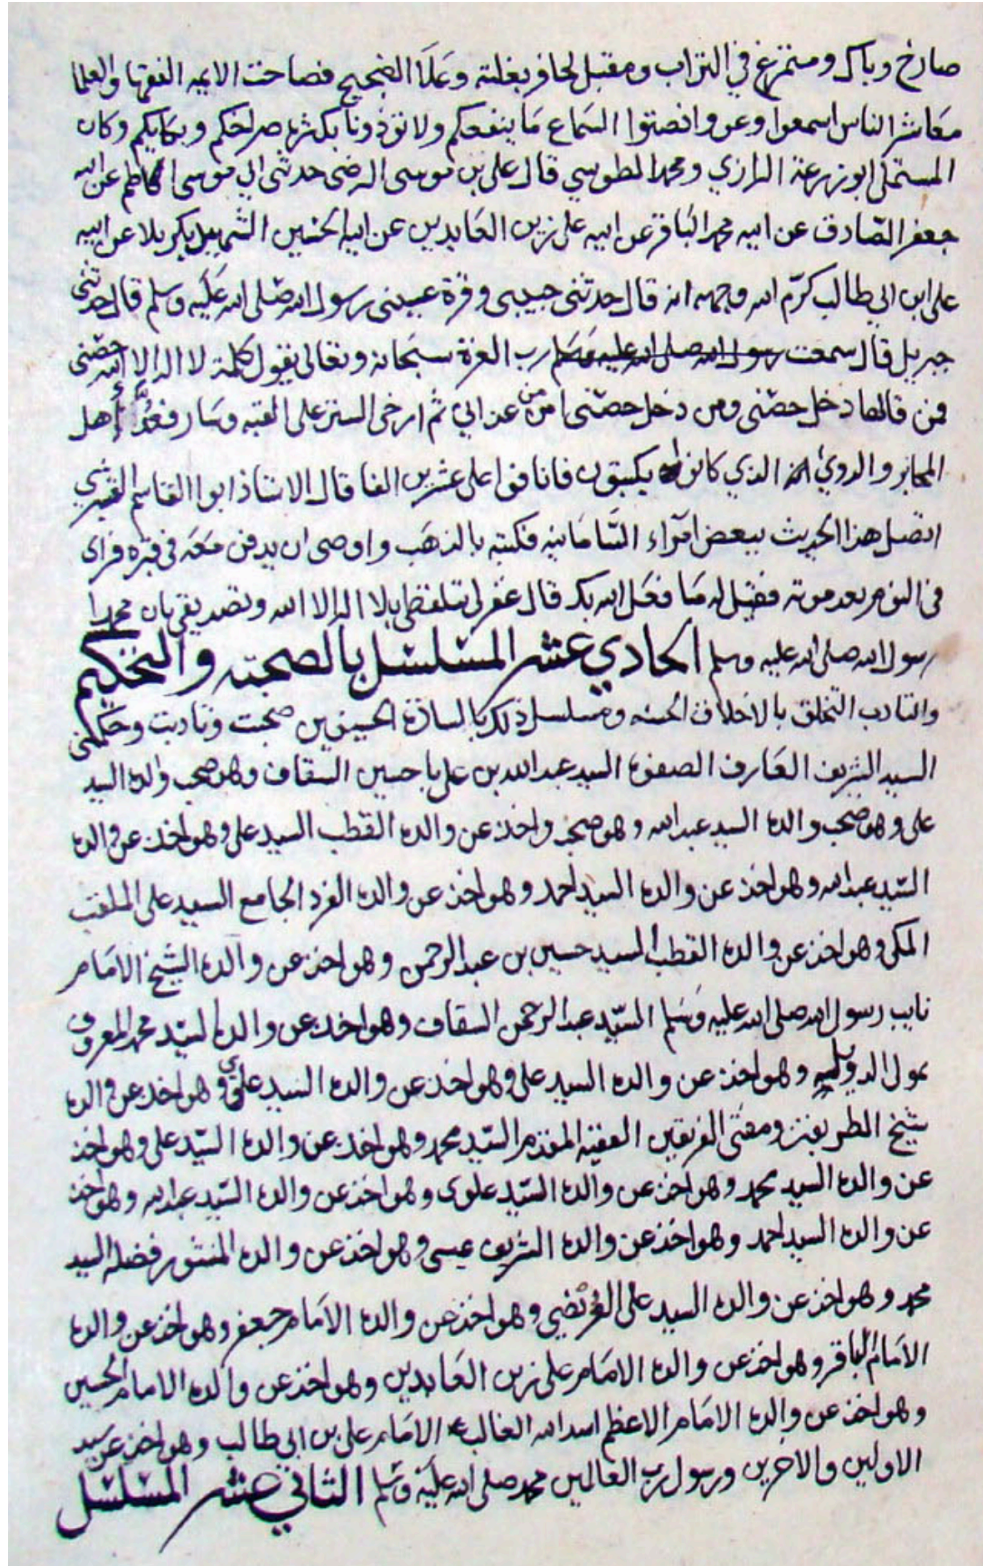 صارخ وباك ومتمرغ في التراب ومقبل لحافر بغلته وعلا الضجيج فصاحت الايمه الفقها والعلما
معاشر الناس اسمعوا وعوا وانصتوا السماع ما ينفعكم ولا توذونا بكثرة صراخكم وبكايكم وكان
المستملي ابو زرعة الرازي ومحمد الطوسي قال علي بن موسى الرضى حدثني ابي موسى الكاظم عن ابيه
جعفر الصادق عن ابيه محمد الباقر عن ابيه علي زين العابدين عن ابيه الحسين الشهيد بكربلا عن ابيه
علي ابن ابي طالب كرم الله وجهه انه قال حدثني حبيبي وقرة عيني رسول الله صلى الله عليه وسلم قال حدثني
جبريل قال سمعت رسول الله صلى الله عليه وسلم رب العزة سبحانه وتعالى يقول كلمة لا اله الا الله حصني
فمن قالها دخل حصني ومن دخل حصني امن من عذابي ثم ارخى الستر على القبه وسار فعدوا أهل
المحابر والدوي الذي كانوا يكتبون فانافوا على عشرين الفا قال الاستاذ ابوا القاسم القشيري
اتصل هذا الحديث ببعض امراء السامانيه فكتبه بالذهب واوصى ان يدفن معه في قبره فراي
في النوم بعد موته فقيل له ما فعل الله بك قال غفر لي بتلفظي بلا اله الا الله وتصديقي بان محمدا
رسول الله صلى الله عليه وسلم الحادي عشر المسلسل بالصحبة والتحكيم
والتادب التخلق بالاخلاق الحسنه ومسلسل ذلك بالسادة الحسينيين صحبت وتادبت وحكمني
السيد الشريف العارف الصفوة السيد عبد الله بن علي باحسين السقاف وهو صحب والده السيد
علي وهو صحب والده السيد عبد الله وهو صحب واخذ عن والده القطب السيد علي وهو اخذ عن والده
السيد عبد الله وهو اخذ عن والده السيد احمد وهو اخذ عن والده الفرد الجامع السيد علي الملقب
المكي وهو اخذ عن والده القطب السيد حسين بن عبد الرحمن وهو اخذ عن والده الشيخ الامام
نايب رسول الله صلى الله عليه وسلم السيد عبد الرحمن السقاف وهو اخذ عن والده السيد محمد المعروف
بمولى الدويله وهو اخذ عن والده السيد علي وهو اخذ عن والده السيد علوي وهو اخذ عن والده
شيخ الطريقتين ومفتى الفريقين الفقيه المقدم السيد محمد وهو اخذ عن والده السيد علي وهو اخذ
عن والده السيد محمد وهو اخذ عن والده السيد علوي وهو اخذ عن والده السيد عبد الله وهو اخذ
عن والده السيد احمد وهو اخذ عن والده الشريف عيسى وهو اخذ عن والده المنتشور فضله السيد
محمد وهو اخذ عن والده السيد علي العريضي وهو اخذ عن والده الامام جعفر وهو اخذ عن والده
الامام الباقر وهو اخذ عن والده الامام علي زين العابدين وهو اخذ عن والده الامام الحسين
وهو اخذ عن والده الامام الاعظم اسد الله الغالب الامام علي بن ابي طالب وهو اخذ عن سيد
الاولين والاخرين ورسول رب العالمين محمد صلى الله عليه وسلم الثاني عشر المسلسل